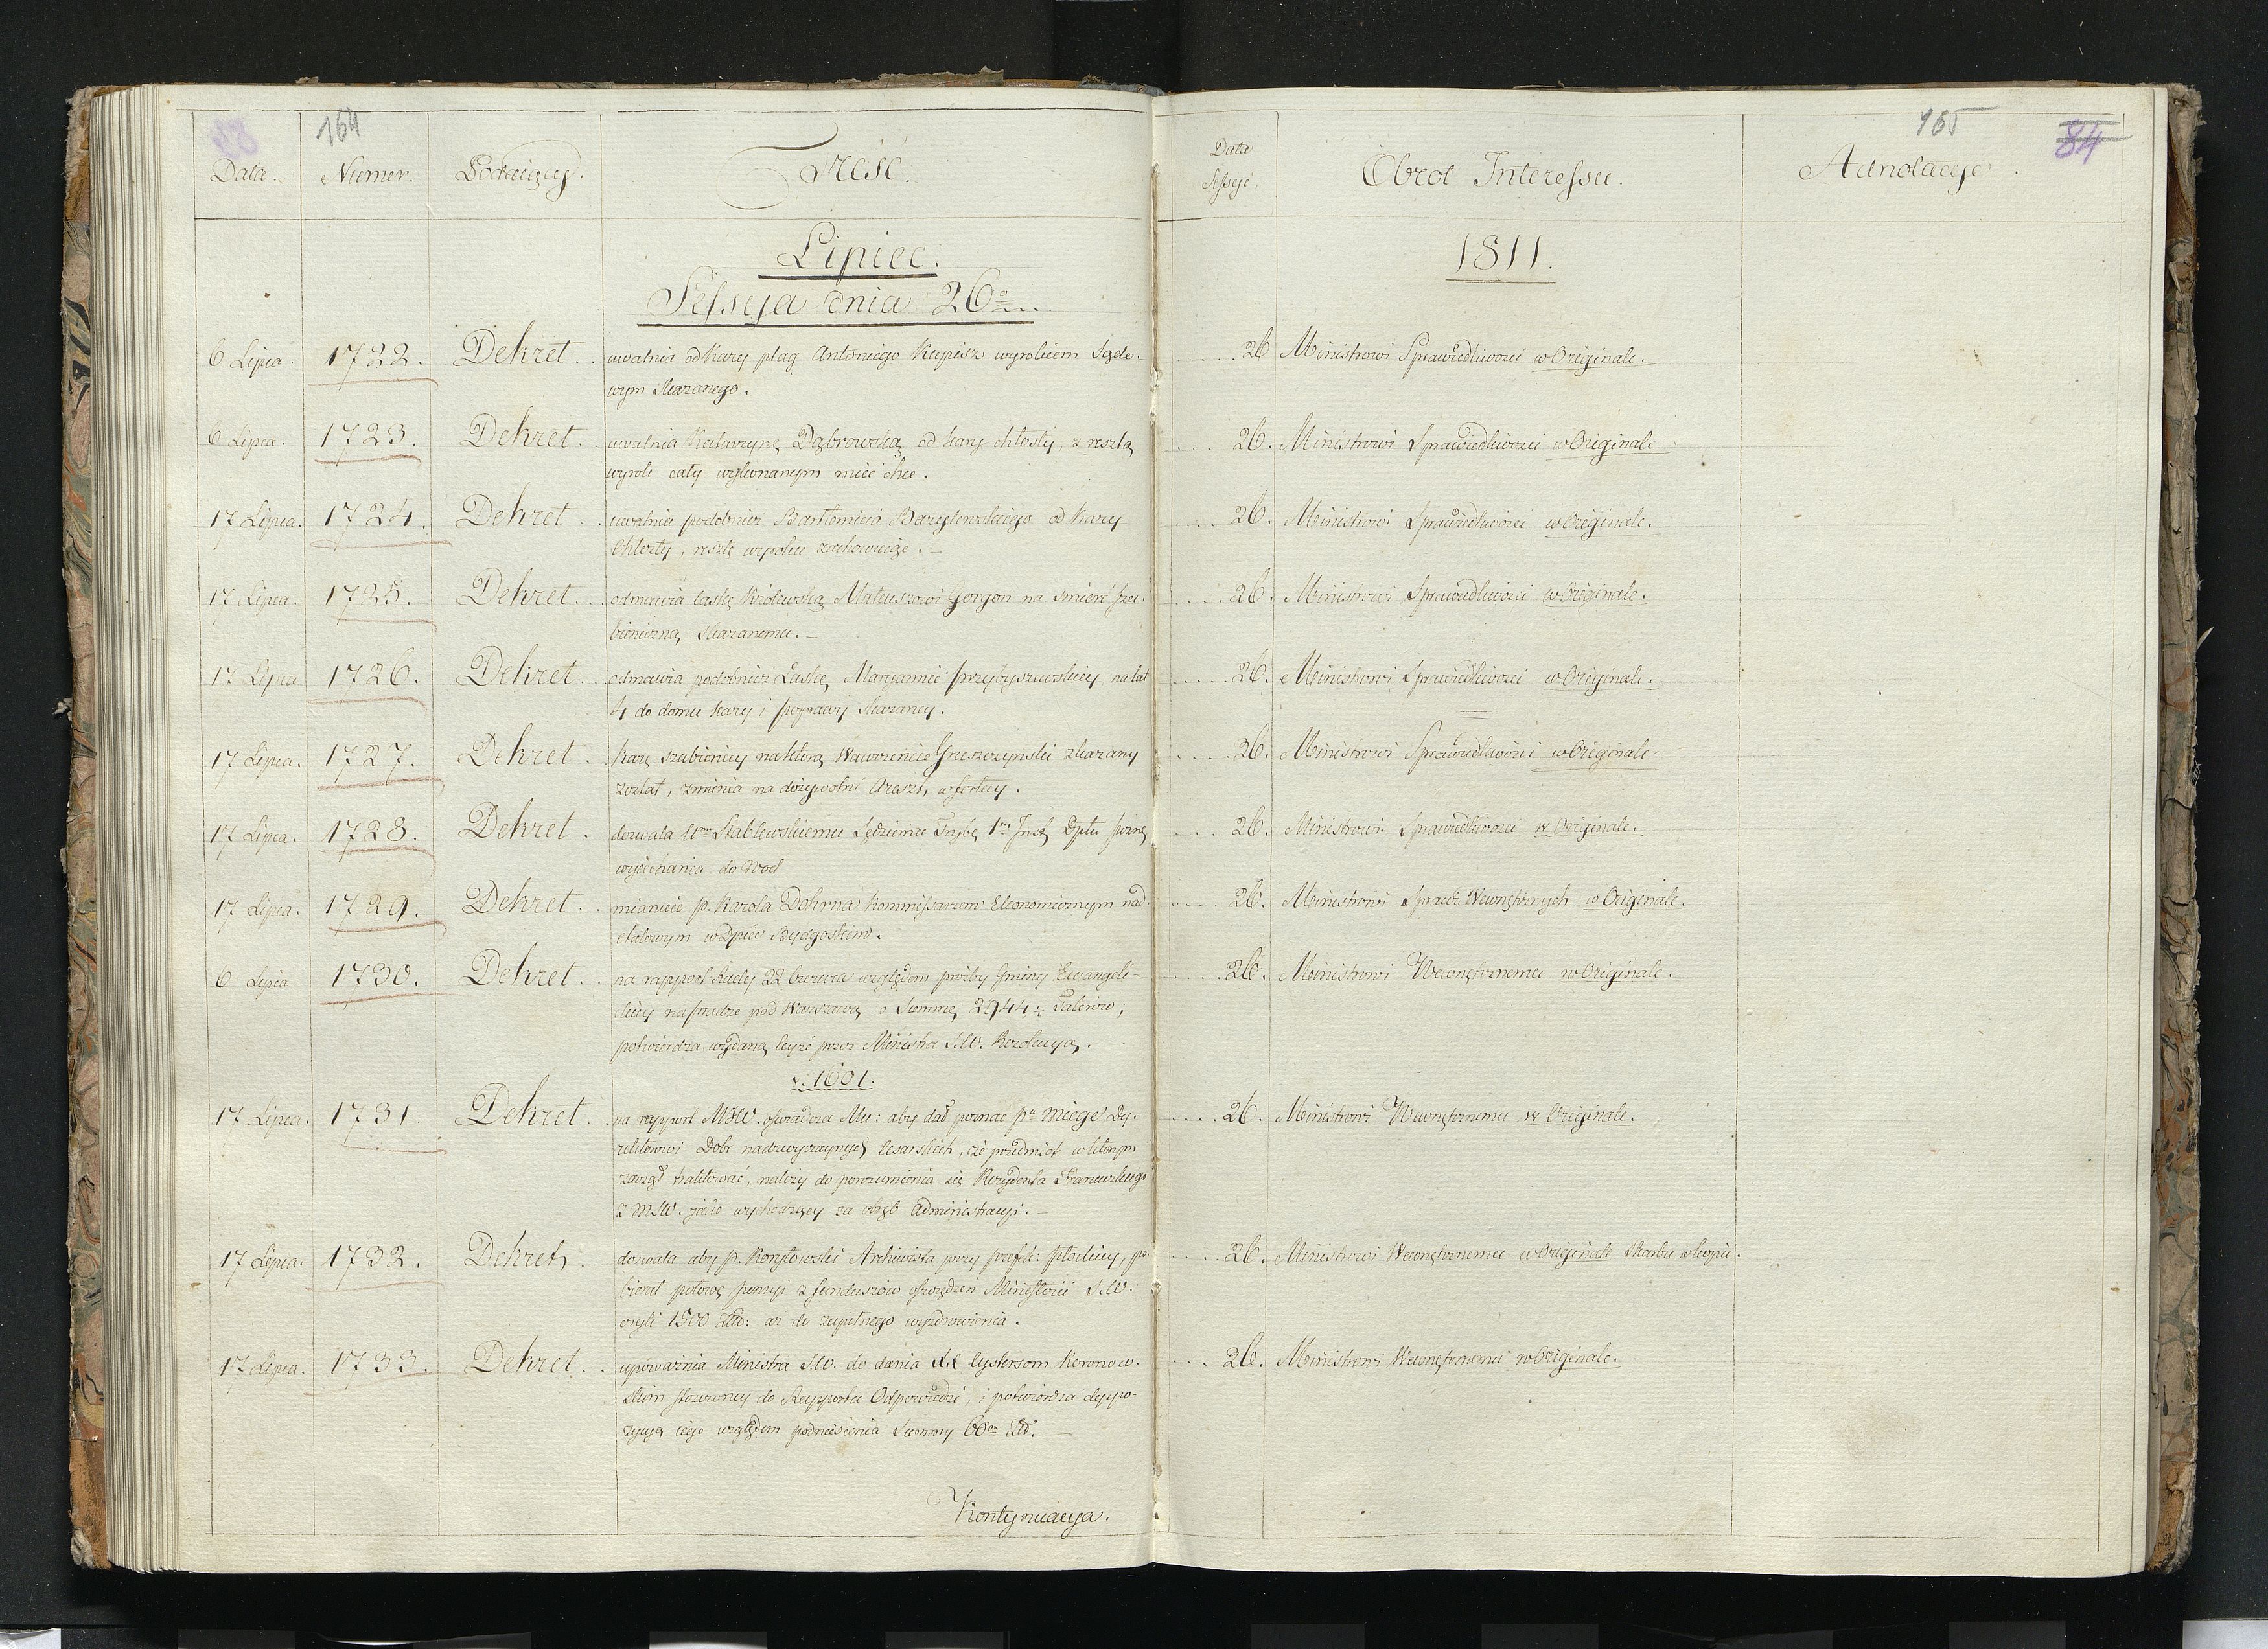 164
Data. Numer. Podaiący. Treść.
Lipiec.
Sessya dnia 26o
6 Lipca. 1722. Dekret. uwalnia od Kary plag Antoniego Kupisz wyrokiem Sądo-
wym skazanego.
6 Lipca. 1723. Dekret. uwalnia Katarzynę Dąbrowską od kary chłosty, z resztą
wyrok cały wykonanym mieć chce.
17 Lipca. 1724. Dekret. uwalnia podobnież Bartłomieia Bazylewskiego od Kary
Chłosty, resztę wyroku zachowuiąc.
17 Lipca. 1725. Dekret. odmawia łaskę Królewską Mateuszowi Gorgon na śmierć szu-
bieniczną skazanemu.
17 Lipca 1726. Dekret. odmawia podobnież Łaskę Maryannie Przybyszewskiey na lat
4 do domu kary i poprawy skazaney.
17 Lipca. 1727. Dekret. Karę szubienicy na którą Wawrzeniec Greszczyński skazany
został, zmienia na dożywotni Areszt w fortecy.
17 Lipca. 1728. Dekret. dozwala Ur Stablewskiemu Sędziemu Trybł 1ey Inst. Dptu Pozną
wyiechania do Wod
17 Lipca. 1729. Dekret. mianuie P. Karola Dohrna Kommissarzem Ekonomicznym nad
etatowym w Dptcie Bydgoskim.
6 Lipca 1730. Dekret. na rapport Rady 22 Czerwca względem prośby Gminy Ewangeli-
ckiey na Pradze pod Warszawą o Summę 2944 Talerów;
potwierdza wydaną teyże przez Ministra S.W. Rezolucyą.
v. 1601.
17 Lipca. 1731. Dekret. na rapport MSW. oświadcza Mu: aby dał poznać Pu Miege Dy-
rektorowi Dobr nadzwyczaynych Cesarskich, że przedmiot w którym
zaczął traktować, należy do porozumienia się Rezydenta Francuzkiego
z MSW. jako wychodzący za obręb Administracyi.
17 Lipca. 1732. Dekret. dozwala aby P. Korytowski Archiwista przy Prefek: Płockiey, po-
bierał połowę pensyi z funduszów oszczędzeń Ministerii S.W.
czyli 1500 Złd: aż do zupełnego wyzdrowienia.
17 Lipca. 1733. Dekret. upoważnia Ministra S.W. do dania XX Cystersom Koronow-
skim stosowney do Rapportu Odpowiedzi, i potwierdza dyspo-
zycyą iego względem podniesienia Summy
Kontynuacya.
165
84
Data
Sessyi. Obrot Interessu. Adnotacye.
1811.
26 Ministrowi Sprawiedliwości w Originale.
26. Ministrowi Sprawiedliwości w Originale
26. Ministrowi Sprawiedliwości w Originale.
26. Ministrowi Sprawiedliwości w Originale.
26. Ministrowi Sprawiedliwości w Originale.
26. Ministrowi Sprawiedliwości w Originale.
26. Ministrowi Sprawiedliwości w Originale.
26. Ministrowi Spraw Wewnętrznych w Originale.
26. Ministrowi Wewnętrznemu w Originale.
26. Ministrowi Wewnętrznemu w Originale.
26. Ministrowi Wewnętrznemu w Originale Skarbu w kopii.
26. Ministrowi Wewnętrznemu w Originale.